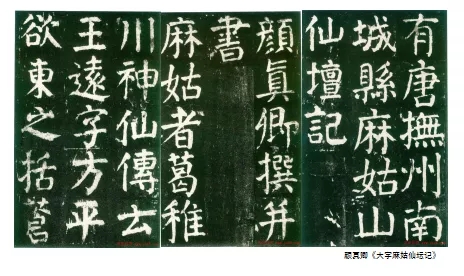 有唐撫州南
城縣麻姑山
仙壇記
顏真卿撰并
書
麻姑者葛稚
川神仙傳云
王遠字方平
欲東之括蒼
顾真卿《大字麻姑仙坛记》